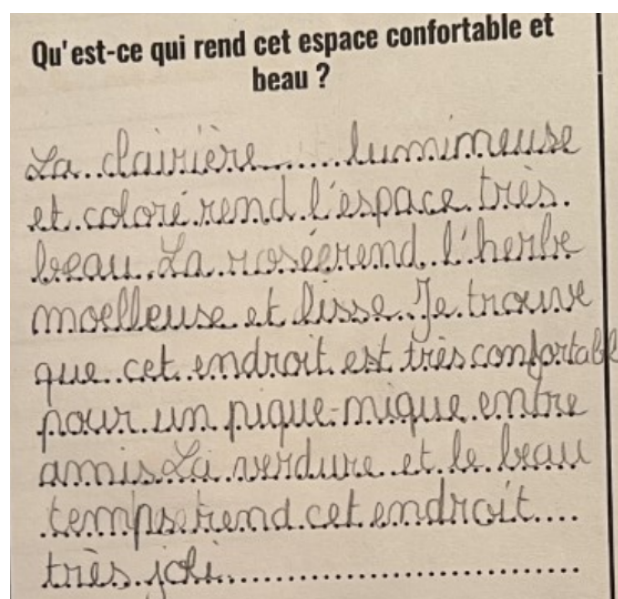 Qu'est-ce qui rend cet espace confortable et
beau ?
La clairière lumimeuse
et coloré rend l'espace très
beau. La rosée rend l'herbe
moelleuse et lisse. Je trouve
que cet endroit est très confortabl
pour un pique-nique entre
amis La verdure et le beau
temps rend cet endroit
très joli